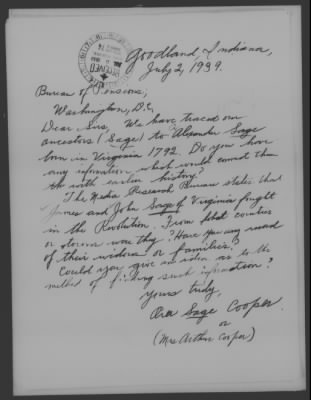 Goodland, Indiana,
July 2, 1939.
Bureau of Pensions,
Washington, D.C.
Dear Sirs, We have traced our
ancestors (Sage) to Alexander Sage
born in Virginia 1792. Do you have
any information which would connect them
with earlier history?
The Media Research Bureau states that
James and John Sage of Virginia fought
in the Revolution. From what counties
or were they? Have you any record
of their widows or families?
Could you give an idea as to the
method of finding such information?
Yours truly,
Ora Sage Cooper.
or
(Mrs Arthur Cooper)
RECEIVED